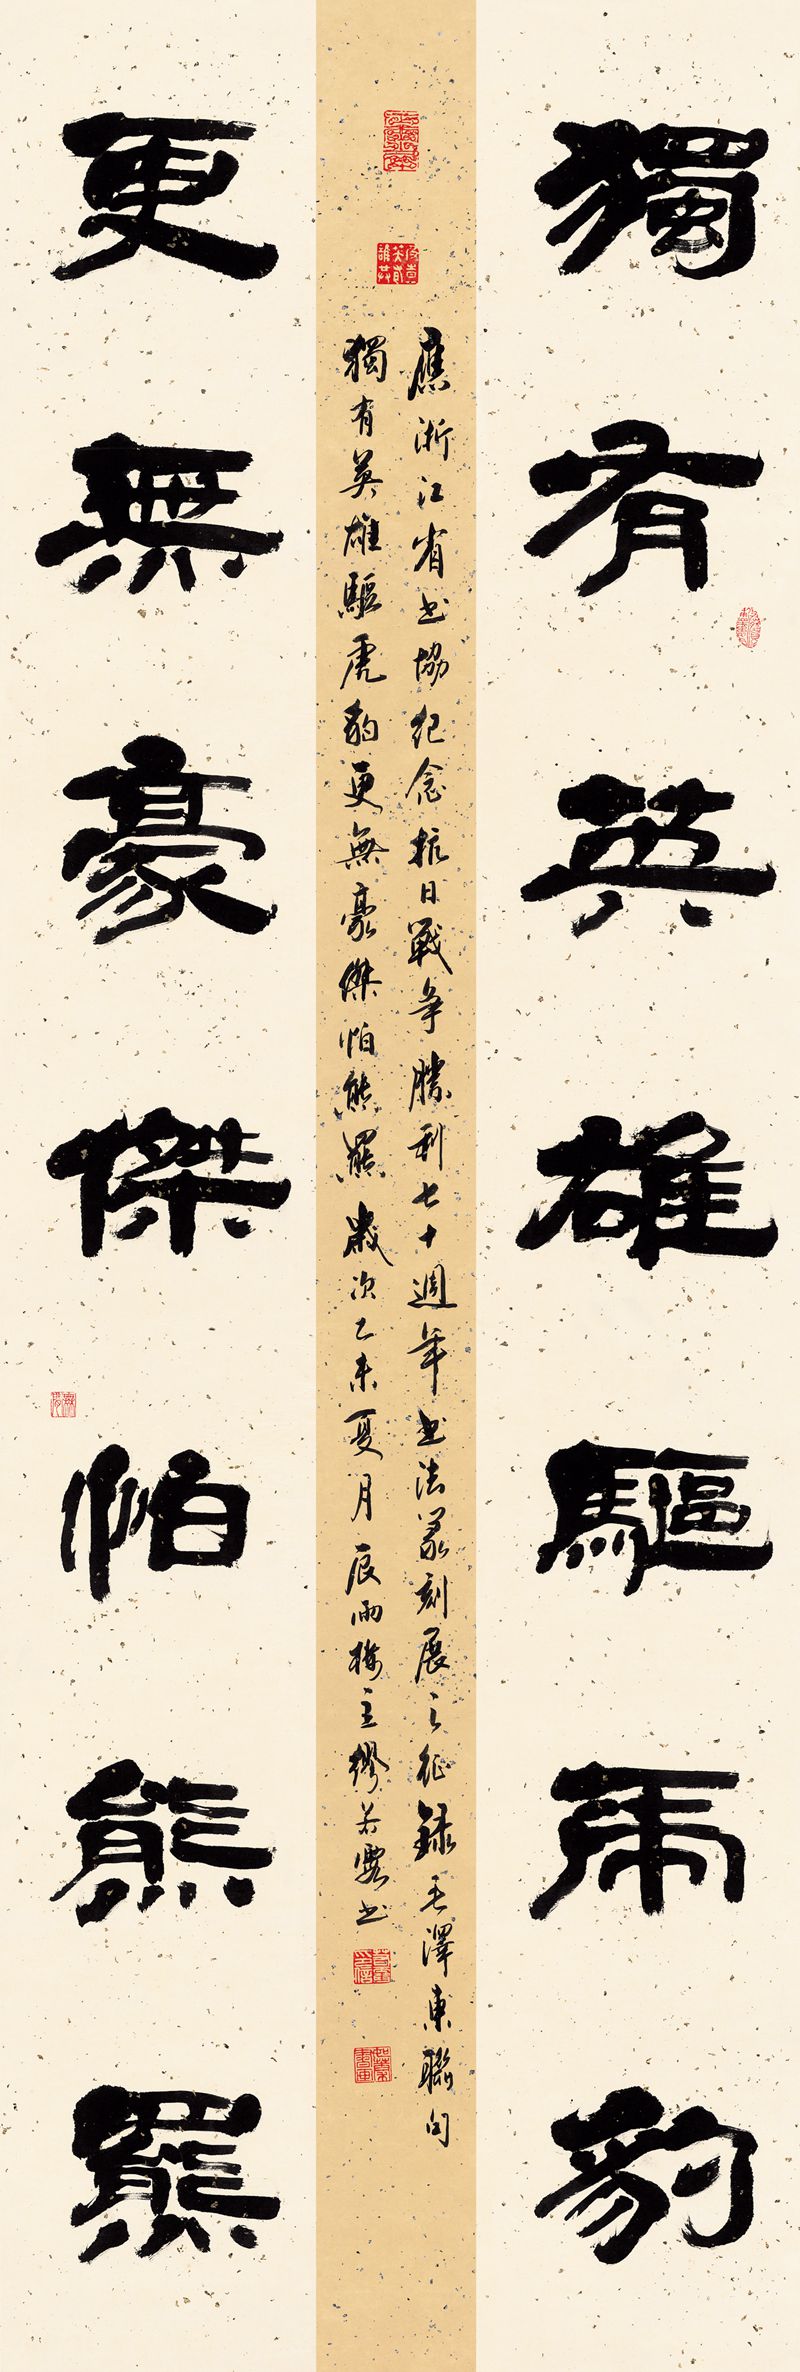 獨有英雄驅虎豹
應浙江省书協纪念抗日戰争勝利七十週年书法篆刻展之征録毛澤東聯句
獨有英雄驅虎豹更無豪傑怕熊羆歲次乙未夏月辰雨樓主繆若霞书
更無豪傑怕熊羆